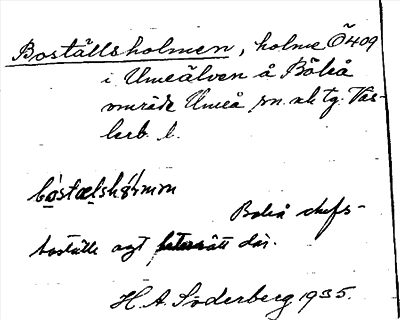 Boställsholmen, holme Ö 409
i Umeälven å Böleå
område Umeå sn. ock tg. Väs-
terb. l.
bóstælshȯ́lmən
Boleå chefs-
boställe ägt rätt där.
H. A. Söderberg 1935.